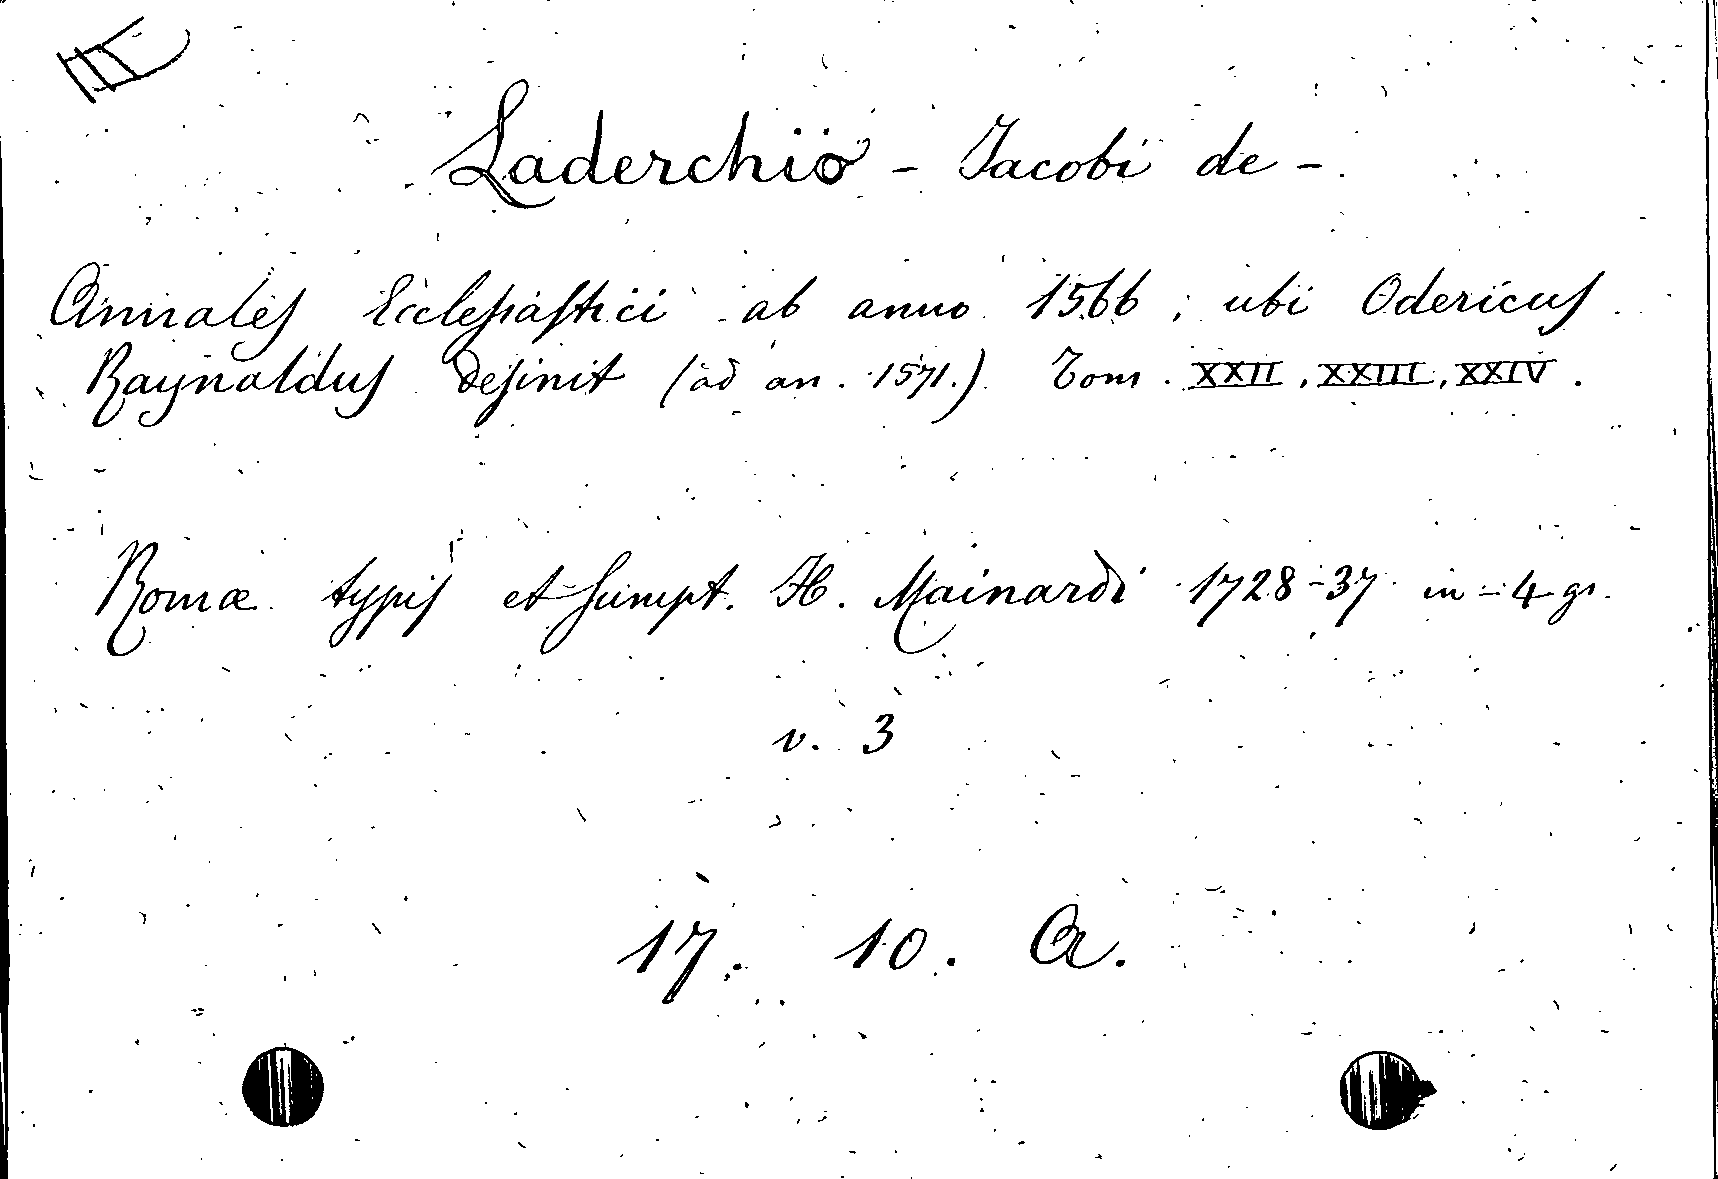 III
Laderchio - Jacobi de -
Annales Ecclesiastici ab anno 1566, ubi Odericus
Raynaldus desinit (ad an. 1571.) Tom. XXII, XXIII, XXIV.
Romæ typis et sumpt. H. Mainardi 1728-37 in-4 gr.
v. 3
17. 10. A.